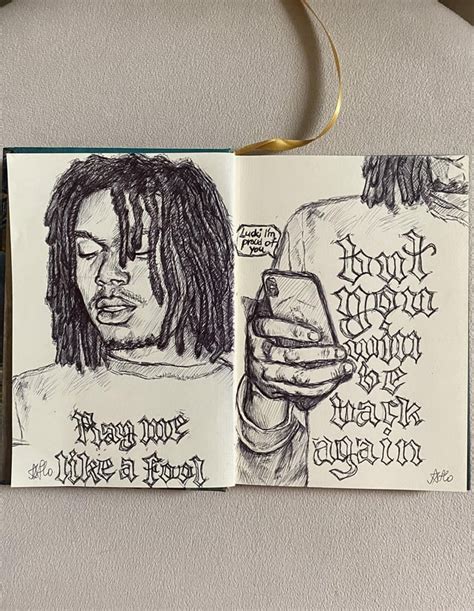 Play me
like a fool
Lucki I'm
proud of
you
but
you
win
be
back
again